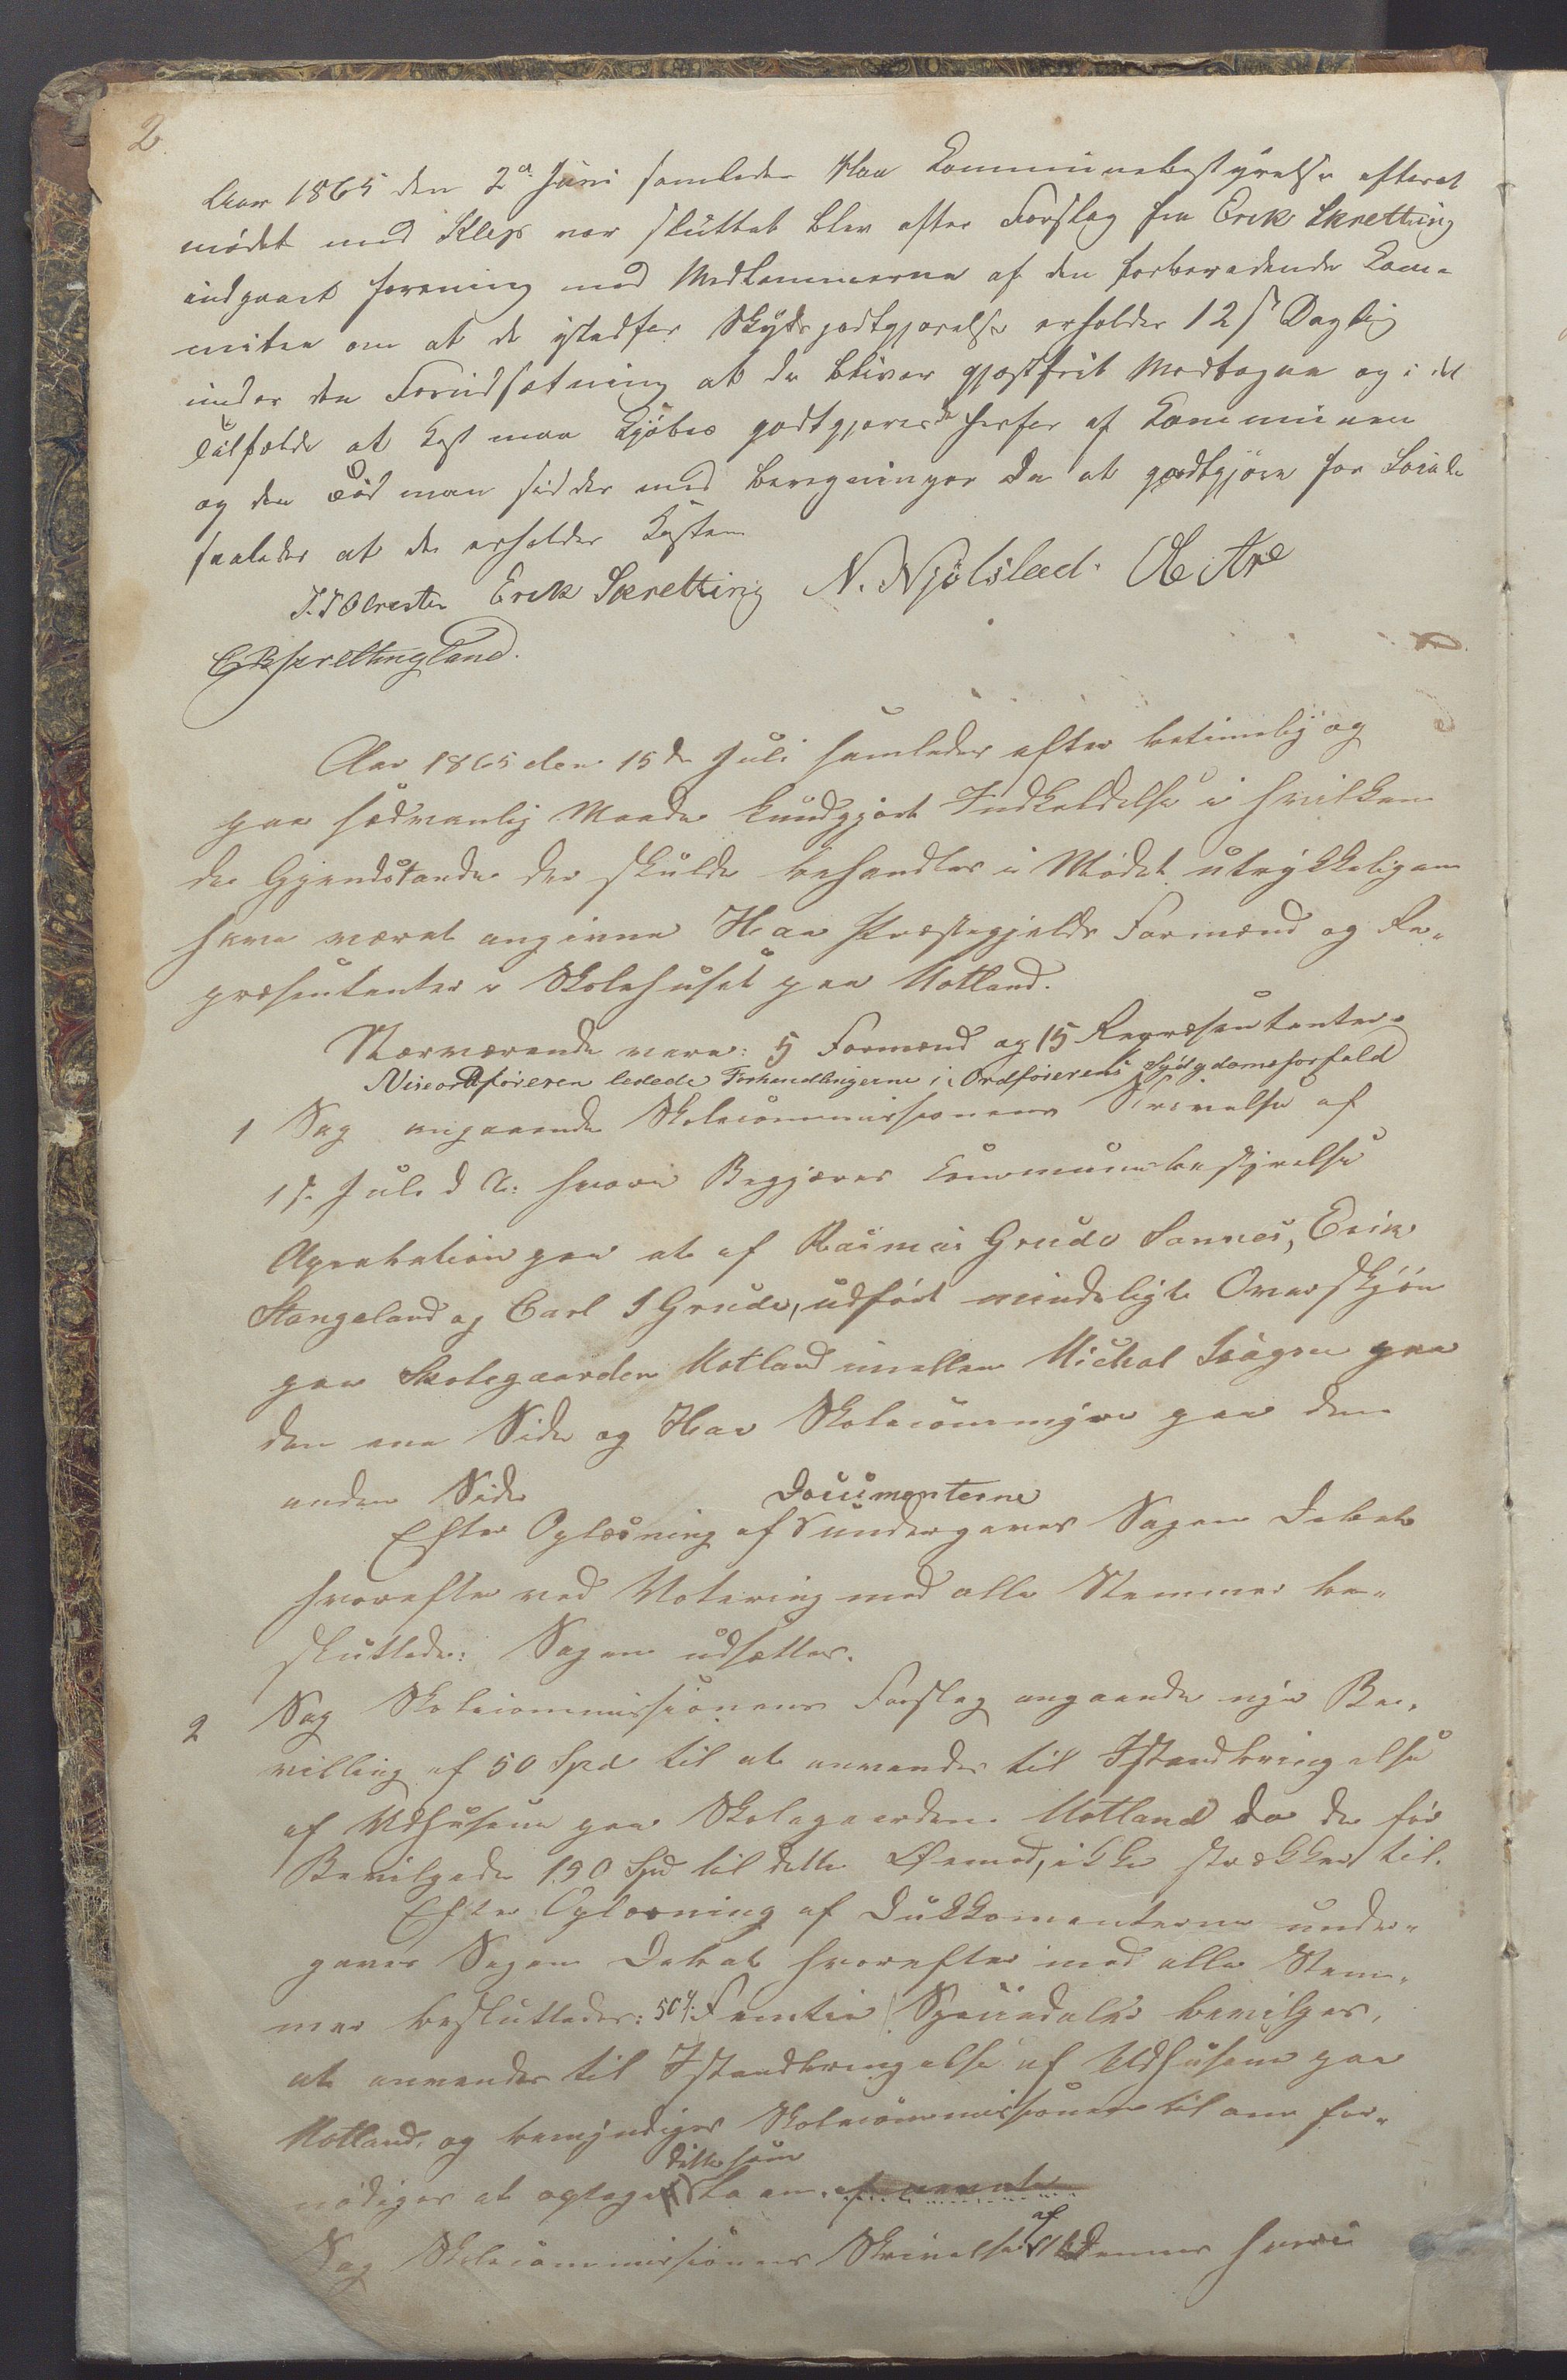 2
Aar 1865 den 2d Juni samledes Haa Kommunebestyrelse efterat
mødet med Klep var sluttet blev efter Forslag fra Erik Skretting
indgaaet forening med Medlemmerne af den forberedende Kom-
mitee om at de istedfor Skydsgodtgjørelse erholder 12 s Daglig
under den Forudsætning at de bliver gjæstfrit Modtagne og i det
Tilfælde at Kost maa Kjøbes godtgjøres de herfor af Kommunen
og den Tid man sidder med beregninger da at godtgjøre for
saaledes at de erholder Kosten
Erik Skretting N. Njølstad.
Skrettingland.
Aar 1865 den 15de Juli samledes efter betimelig og
paa sædvanlig Maade kundgjort Indkaldelse i hvilken
de Gjendstande der skulde behandles i Mødet utrykkeligen
have været angivne Haa Præstegjelds Formænd og Re-
præsentanter i Skolehuset paa Motland.
Nærværende vare: 5 Formænd og 15 Repræsentanter.
Viseordføreren ledede Forhandlingerne i Ordførerens Sygdomsforfald
1 Sag angaaende Skolecommissionens Skrivelse af
1s. Juli d A: hvori Begjæres Communebestyrelse
Aprobation paa at af Rasmus Grude Sannes, Erik
Stangeland og Carl I Grude, udført mindeligt Overskjøn
paa Skolegaarden Motland imellem Michal paa
den ene Side og Haa Skolecommision paa den
anden Side
Efter Oplæsning af Documenterne undergaves Sagen Debat
hvorefter ved Votering med alle Stemmer be-
sluttedes: Sagen udsættes.
2 Sag Skolecommissionens Forslag angaaende nye Be-
villing af 50 Spd til at anvendes til Istandbringelse
af Udhusene paa Skolegaarden Motland da de før
Bevilgede 190 Spd til dette Øiemed, ikke strækker til.
Efter Oplæsning af Dukkomenterne under-
gaves Sagen Debat hvorefter med alle Stem-
mer besluttedes: 50 /: Femtie / Speciedaler bevilges,
at anvendes til Istandbringelse af Udhusene paa
Motland, og bemyndiges Skolecommissionen til om for-
nødiges at optage dette som Laan.
Sag Skolecommissionens Skrivelse af hvori